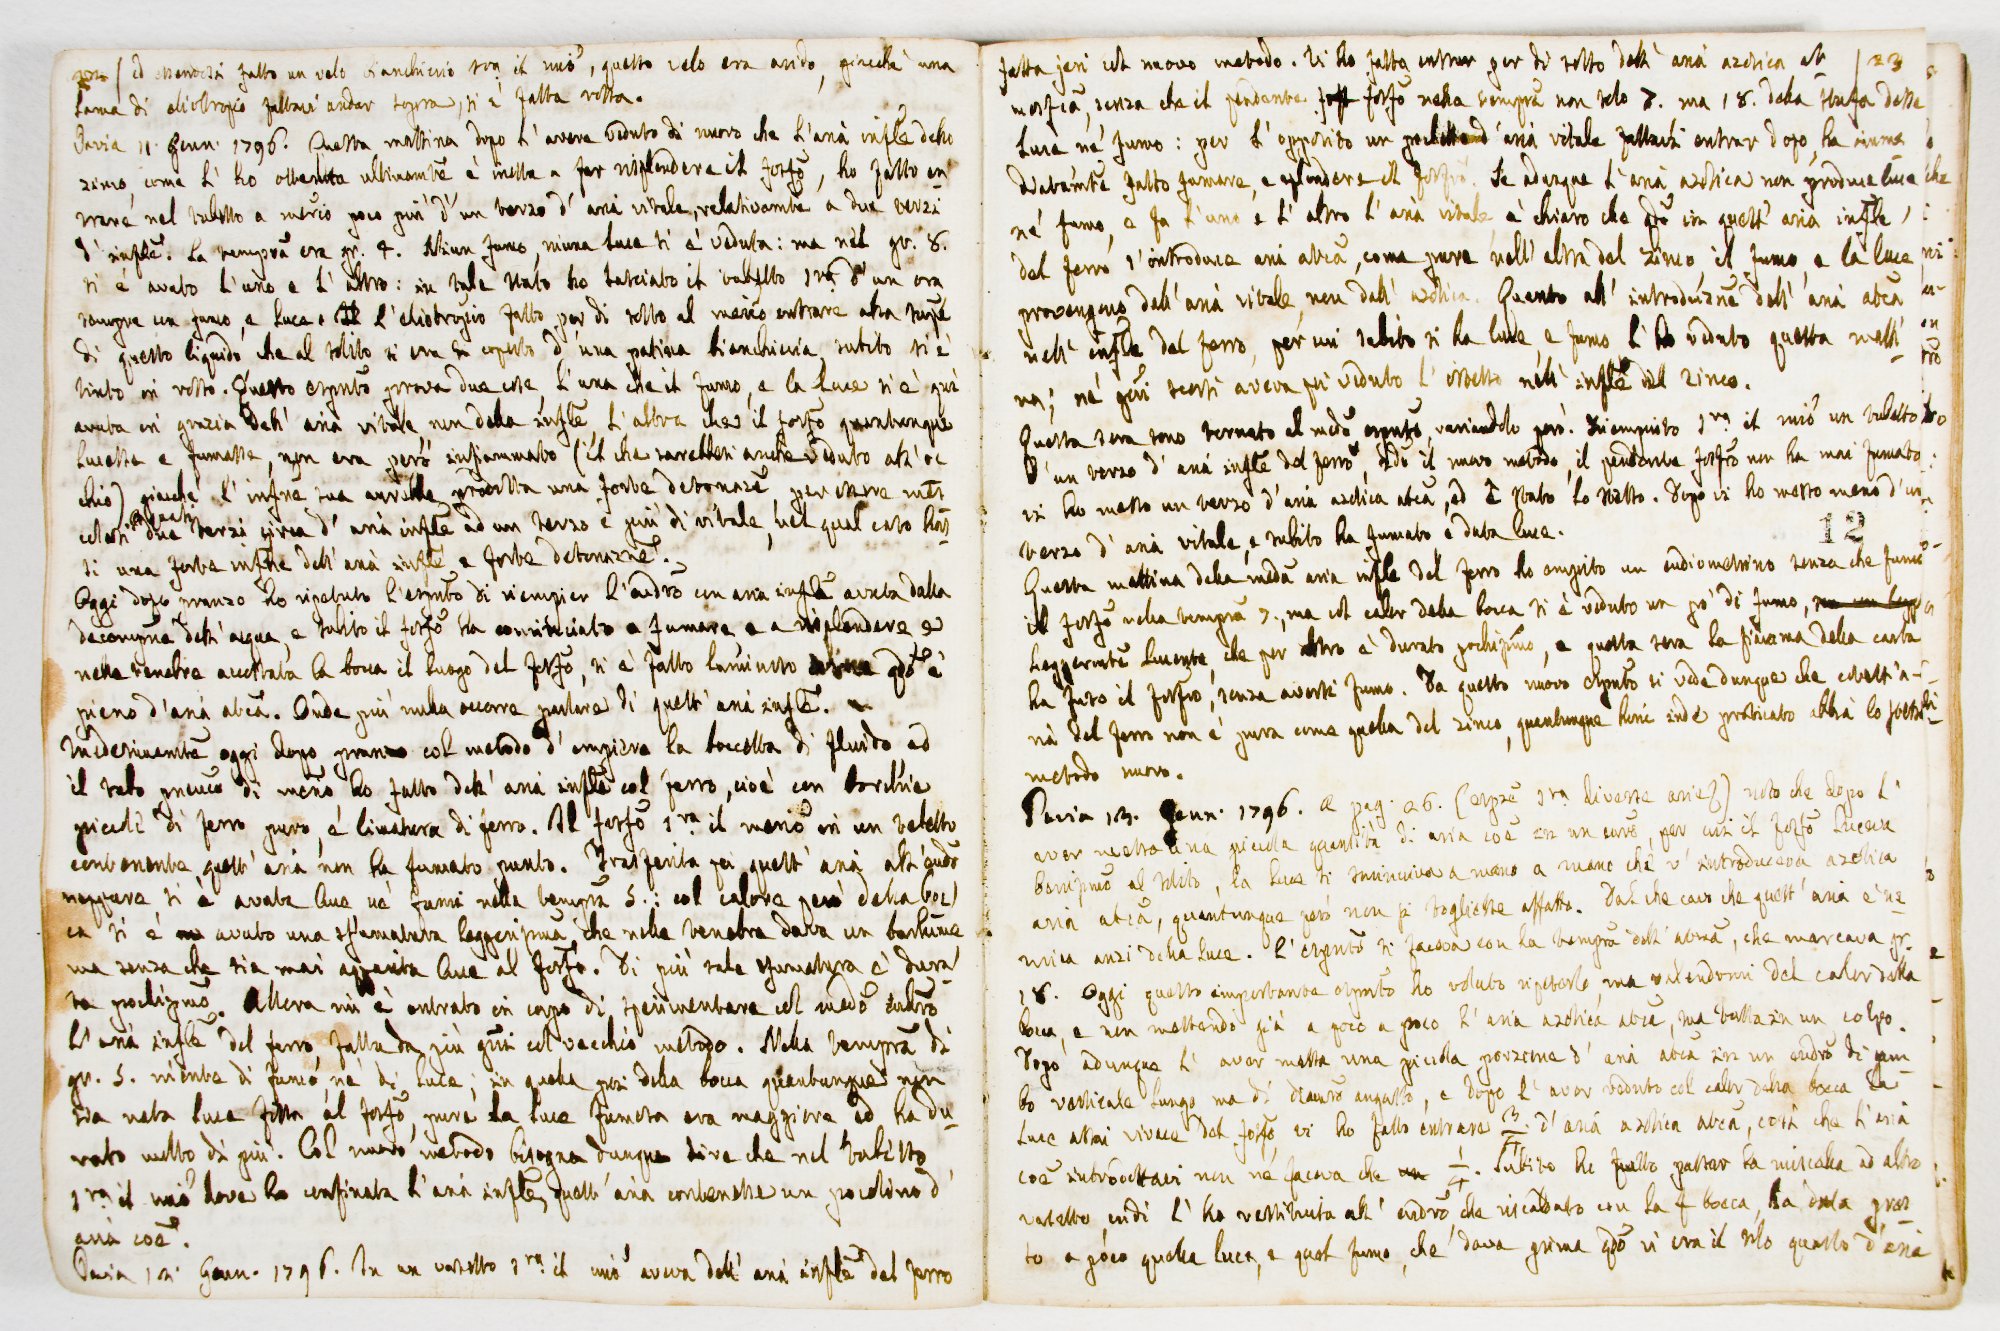 22 ( ed essendosi fatto un velo bianchiccio sop.ª il mio, questo velo era acido, giacchè una
lama di eliotropio fattavi andar sopra, si è fatta rossa.
Pavia 11. Genn. 1796. Questa mattina dopo l' avere veduto di nuovo che l' aria infle dello
zinco come l' ho ottenuta ultimamte è inetta a far risplendere il fosfo, ho fatto en
trare nel tubetto a merio poco più d' un terzo d' aria vitale, relativamte a due terzi
d' infle. La tempra era gr. 4. Niun fumo, niuna luce si è veduta: ma nel gr. 8.
si è avuto l' uno e l' altro: in tale stato ho lasciato il tubetto un' ora
sempre con fumo, e luce. L' eliotropio fatto per di sotto al merio entrare alla supe
di questo liquido che al solito si era coperto d' una patina bianchiccia subito si è
tinto in rosso. Questo espto prova due cose, l' una che il fumo, e la luce si è qui
avuta in grazia dell' aria vitale, non della infle, l' altra che il fosfo quantunque
lucesse e fumasse, non era però infiammato (il che sarebbesi anche veduto all' oc
chio) giacchè l' infne sua avrebbe prodotta una forte detonazne, per essere mes
colati quasi due terzi circa d' aria infle ad un terzo e più di vitale, nel qual caso has
si una forte infne dell' aria infle e forte detonazne.
Oggi dopo pranzo ho ripetuto l' espto di riempier l' eudro con aria infle avuta dalla
decompne dell' acqua, e subito il fosfo ha cominciato a fumare e a risplendere e
nelle tenebre accostata la bocca il luogo del fosfo, si è fatto luminoso come qdo è
pieno d' aria atca. Onde più nulla occorre parlare di quest' aria infle.
Medesimamte oggi dopo pranzo col metodo d' empiere la boccetta di fluido, ed
il resto di merio ho fatto dell' aria infle col ferro, cioè con
piccoli di ferro puro, e limatura di ferro. Il fosfo sop.ª il merio in un tubetto
contenente quest' aria non ha fumato punto. Trasferita poi quest' aria all' eudro
neppure si è avuta luce nè fumo nella tempra 5.: col calore però della boc
ca si è avuto una sfumatura leggerissima che nelle tenebre dava un barlume
ma senza che sia mai apparita luce al fosfo. Di più tale sfumatura è dura
ta pochissimo. Allora mi è entrato in corpo di sperimentare col medo eudro
l' aria infle del ferro, fatta da più giorni col vecchio metodo. Nella tempra di
gr. 5. niente di fumo nè di luce; in quella poi della bocca quantunque non
sia nata luce fissa al fosfo, pure la luce fumosa era maggiore ed ha du-
rato molto di più. Col nuovo metodo bisogna dunque dire che nel tubetto
sop.ª il merio dove ho confinata l' aria infle, quest' aria contenesse un pocolino d'
aria coe.
Pavia 12. Genn. 1796. In un tubetto sop.ª il merio aveva dell' aria infle del ferro
23
fatta jeri col nuovo metodo. Vi ho fatta entrar per di sotto dell' aria azotica at
mosfca, senza che il pendente fosfo nella tempra non solo 7. ma 18. della stufa desse
luce nè fumo: per l' opposito un pochetto d' aria vitale fattavi entrar dopo, ha imme
diatamte fatto fumare, e splendere il fosfo. Se adunque l' aria azotica non produce luce
nè fumo, e fa l' uno e l' altro l' aria vitale, è chiaro che qdo in quest' aria infle,
del ferro s' introduce aria atca, come pure nell' altra del zinco, il fumo, e la luce
provengono dall' aria vitale, non dall' azotica. Quanto all' introduzne dell' aria atca
nell' infle del ferro, per cui subito si ha luce, e fumo l' ho veduto questa matti
na; nè jeri scorsi aveva poi veduto l' istesso nell' infle del zinco.
Questa sera sono tornato al medo espto, variandolo però. Riempiuto sop.ª il merio un tubetto
d' un terzo d' aria infle del ferro, sedo il nuovo metodo, il pendente fosfo non ha mai fumato.
vi ho messo un terzo d' aria azotica atca, ed è stato lo stesso. Dopo vi ho messo meno d' un
terzo d' aria vitale, e subito ha fumato e data luce.
12
Questa mattina della meda aria infle del ferro ho empito un eudiometrino senza che fumi
il fosfo nella tempra 7., ma col calor della bocca si è veduto un po' di fumo,
leggermte lucente, che per altro è durato pochissimo, e questa sera la fiamma della carta
ha fuso il fosfo, senza aversi fumo. Da questo nuovo espto si vede dunque che cotest' a-
ria del ferro non è pura come quella del zinco, quantunque abbia lo stesso
metodo nuovo.
Pavia 13. Genn. 1796. A pag. 26. (espze sop.ª diverse arie) noto che dopo l'
aver messo una piccola quantità di aria coe in un eudro, per cui il fosfo luceva
benissimo al solito, la luce si sminuiva a mano a mano che v' introduceva azotica
aria atca, quantunque però non si togliesse affatto. Dal che cavo che quest' aria è ne-
mica anzi della luce. L' espto si faceva con la tempra dell' atmra, che marcava gr.
18. Oggi questo importante espto ho voluto ripeterlo, ma valendomi del calor della
bocca, e non mettendo già a poco a poco l' aria azotica atca, ma tutta in un colpo.
Dopo adunque l' aver messa una piccola porzione d' aria atca in un eudro di
bo verticale lungo ma di diamro angusto, e dopo l' aver veduto col calor della bocca la
luce assai vivace del fosfo, vi ho fatto entrare 3/4 d' aria azotica atca, così che l' aria
coe introdottavi non ne faceva che 1/4. Subito ho fatto passar la miscela ad altro
vasetto indi l' ho restituita all' eudro, che riscaldato con la bocca, ha data pres
so a poco quella luce, e quel fumo, che dava prima qdo vi era il solo quarto d' aria